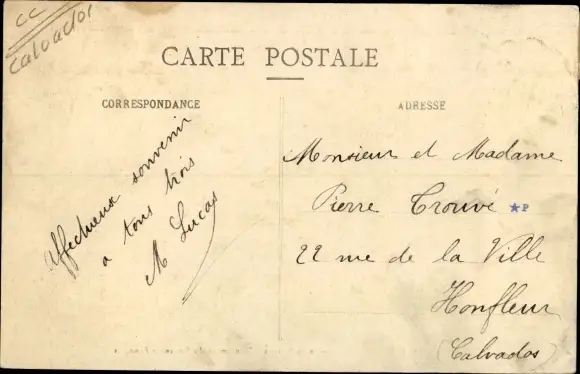 CC
Calvados
CARTE POSTALE
CORRESPONDANCE
ADRESSE
Affectueux souvenir
a tous trois
M Lucas
Monsieur et Madame
Pierre Trouvé ★P
22 rue de la Ville
Honfleur
(Calvados)